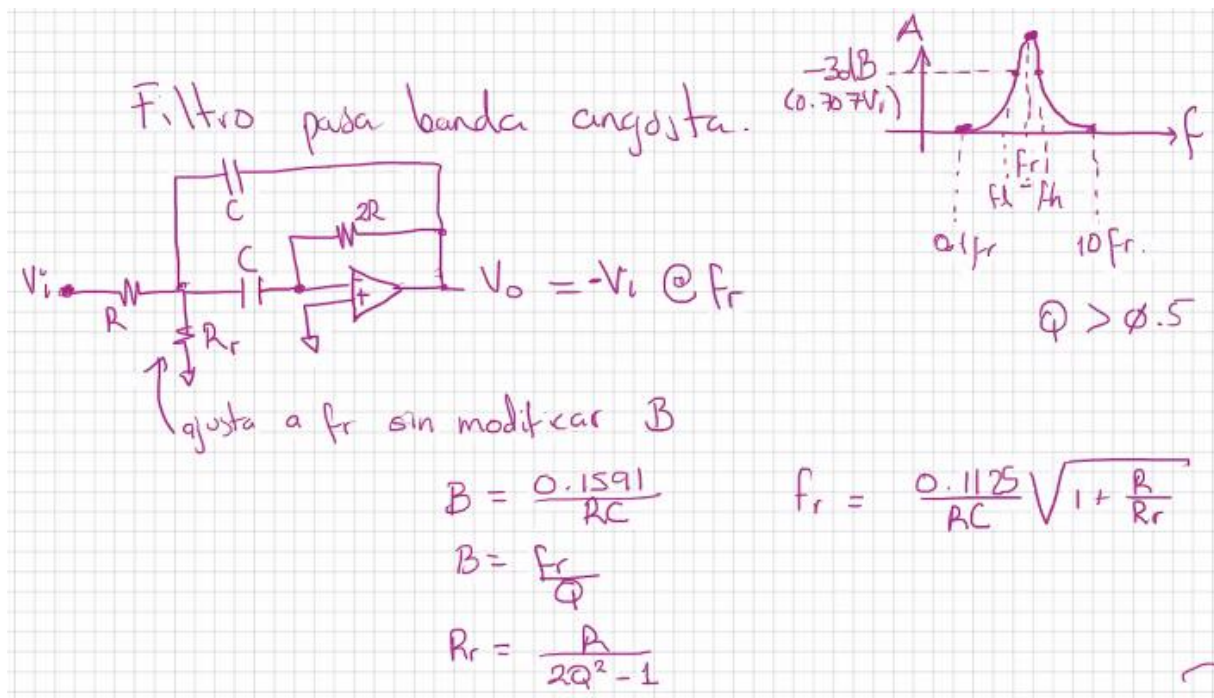 Filtro pasa banda angosta.
A
-3dB
(0.707Vi)
f
fr
fl
fh
0.1fr
10fr.
Q > 0.5
C
2R
C
Vi
R
Rr
-
+
Vo = -Vi @ fr
ajusta a fr sin modificar B
B = 0.1591 / RC
fr = 0.1125 / RC √(1 + R / Rr)
B = fr / Q
Rr = R / 2Q² - 1